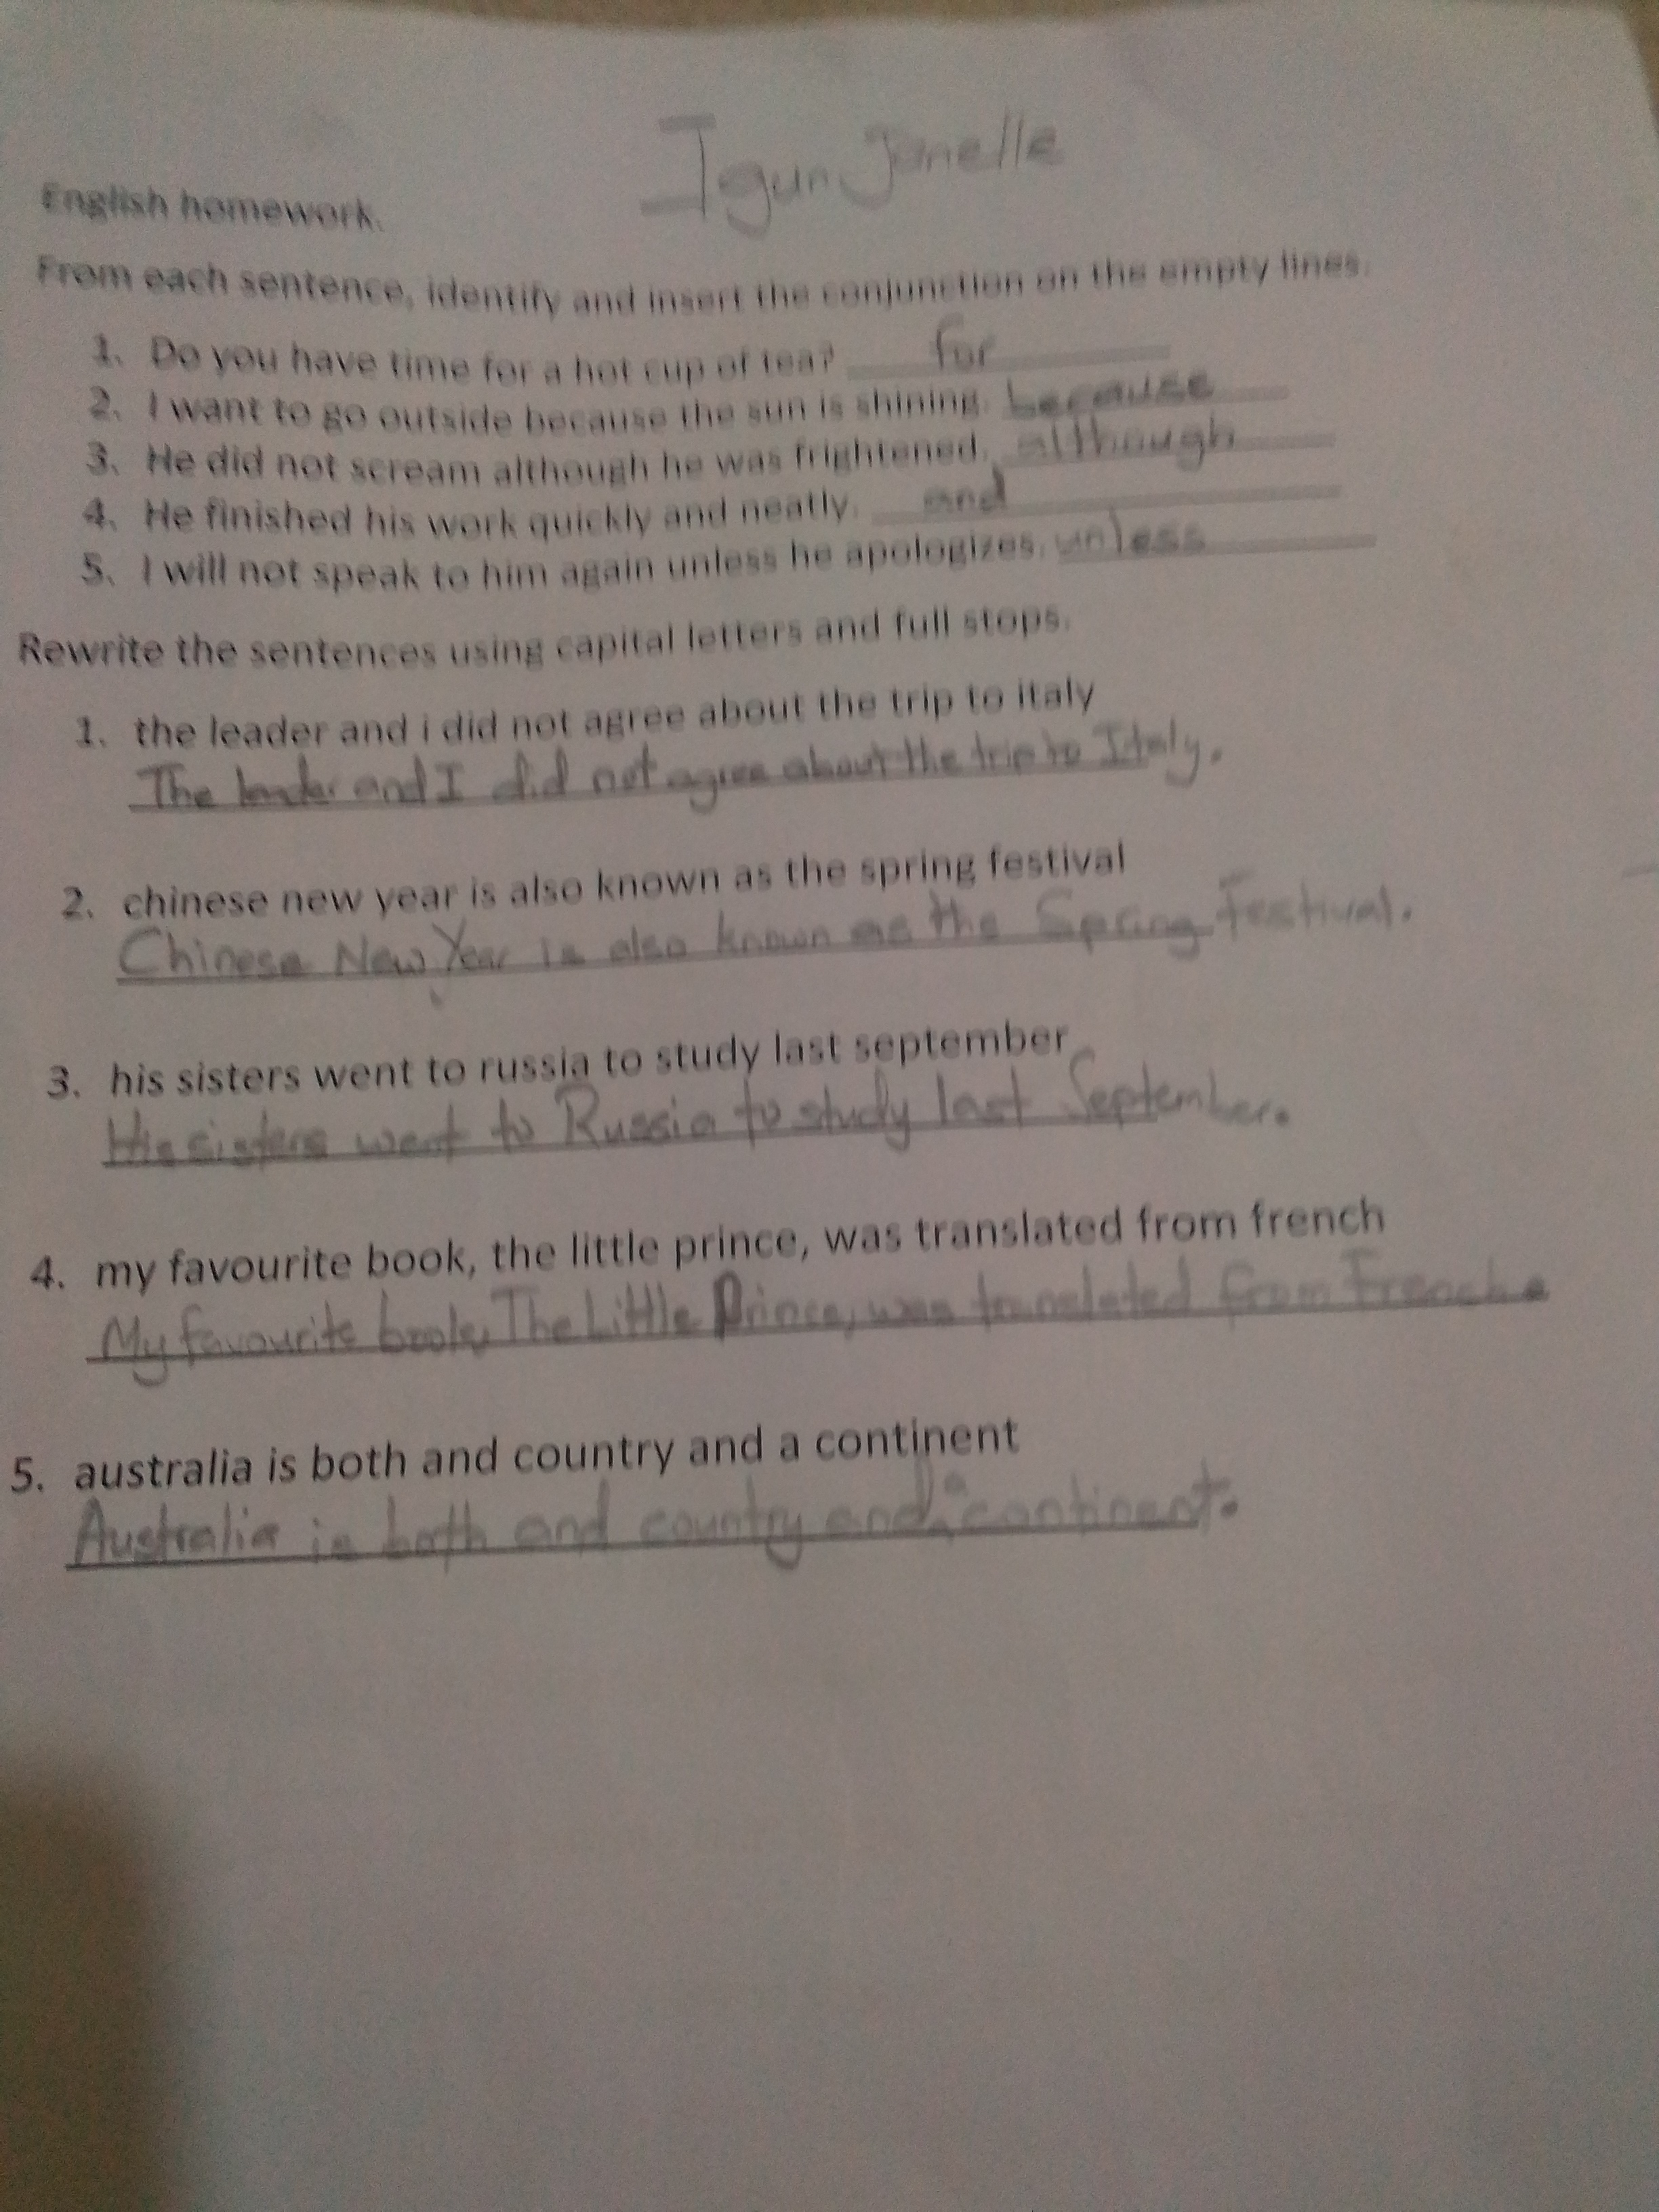 Igun Janelle
English homework.
From each sentence, identify and insert the conjunction on the empty lines.
1. Do you have time for a hot cup of tea? for
2. I want to go outside because the sun is shining. because
3. He did not scream although he was frightened. although
4. He finished his work quickly and neatly. and
5. I will not speak to him again unless he apologizes. unless
Rewrite the sentences using capital letters and full stops.
1. the leader and i did not agree about the trip to italy
The leader and I did not agree about the trip to Italy.
2. chinese new year is also known as the spring festival
Chinese New Year is also known as the Spring Festival.
3. his sisters went to russia to study last september
His sisters went to Russia to study last September.
4. my favourite book, the little prince, was translated from french
My favourite book, The Little Prince, was translated from French.
5. australia is both and country and a continent
Australia is both and country and a continent.